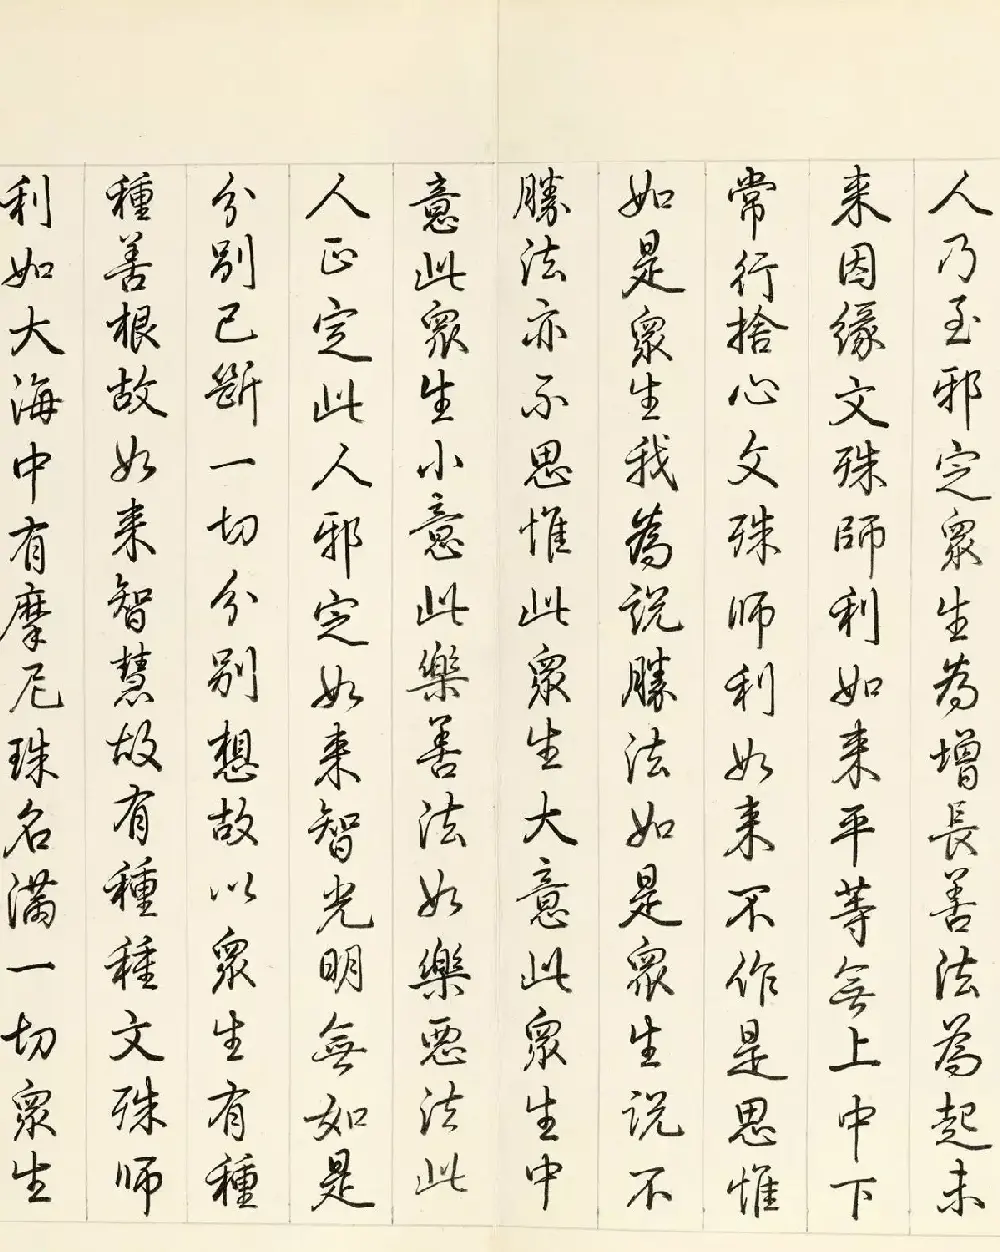 人乃至邪定眾生為增長善法為起未
来因缘文殊師利如来平等無上中下
常行捨心文殊师利如来不作是思惟
如是眾生我為说勝法如是眾生说不
勝法亦不思惟此眾生大意此眾生中
意此眾生小意此樂善法如樂惡法此
人正定此人邪定如来智光明無如是
分别已斷一切分别想故以眾生有種
種善根故如来智慧故有種種文殊师
利如大海中有摩尼珠名满一切眾生